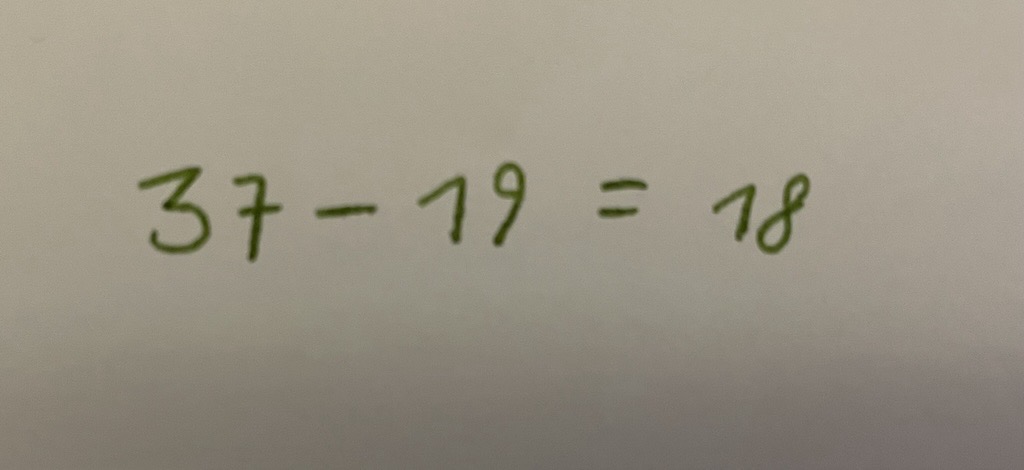 37 - 19 = 18